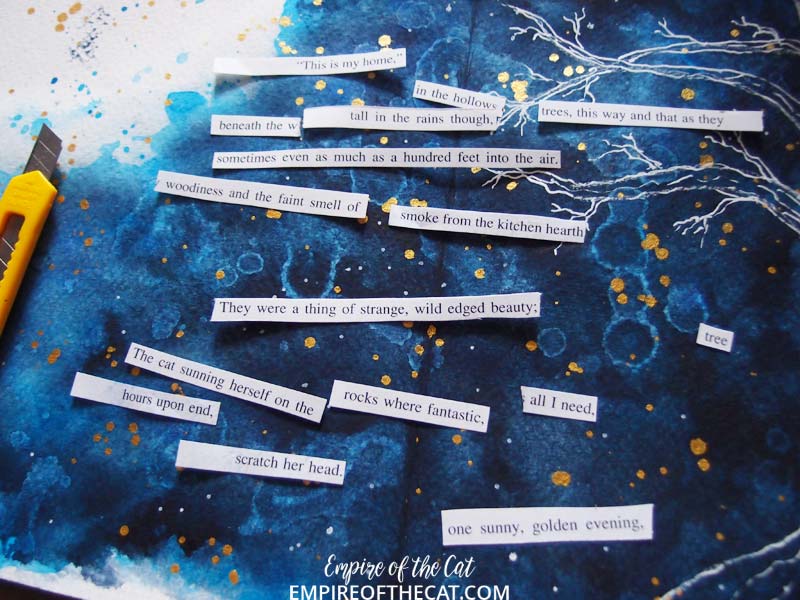 "This is my home,"
in the hollows
beneath the w
tall in the rains though,
trees, this way and that as they
sometimes even as much as a hundred feet into the air.
woodiness and the faint smell of
smoke from the kitchen hearth
They were a thing of strange, wild edged beauty;
tree
The cat sunning herself on the
hours upon end,
rocks where fantastic,
all I need,
scratch her head.
one sunny, golden evening,
Empire of the Cat
EMPIREOFTHECAT.COM